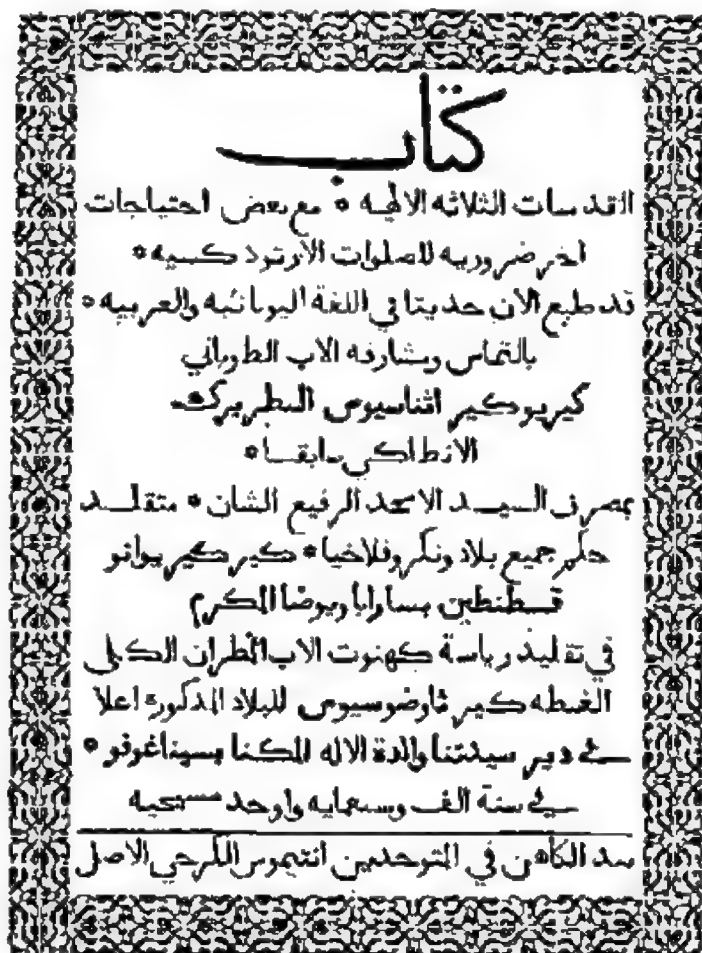 كتاب
القدسات الثلاثه الالهيه * مع بعض احتياجات
اخر ضروريه للصلوات الارتودكسيه *
قد طبع الان حديثا في اللغة اليونانيه والعربيه *
بالتماس ومشارفة الاب الطوباني
كيريو كير اثناسيوس البطريرك
الانطاكي سابقا *
بمصرف السيد الامجد الرفيع الشان * متقلد
حكم جميع بلاد ونكروفلاخيا * كير كير يوانو
قسطنطين بسارابا ويوضا المكرم
في تقليد رياسة كهنوت الاب المطران الكلي
الغبطه كير ثاوضوسيوس للبلاد المذكورة اعلا
في دير سيدتنا والدة الاله المكنا بسيناغوفو *
في سنة الف وسبعمايه واوحد مسيحيه
بيد الكاهن في المتوحدين انتيموس الكرجي الاصل